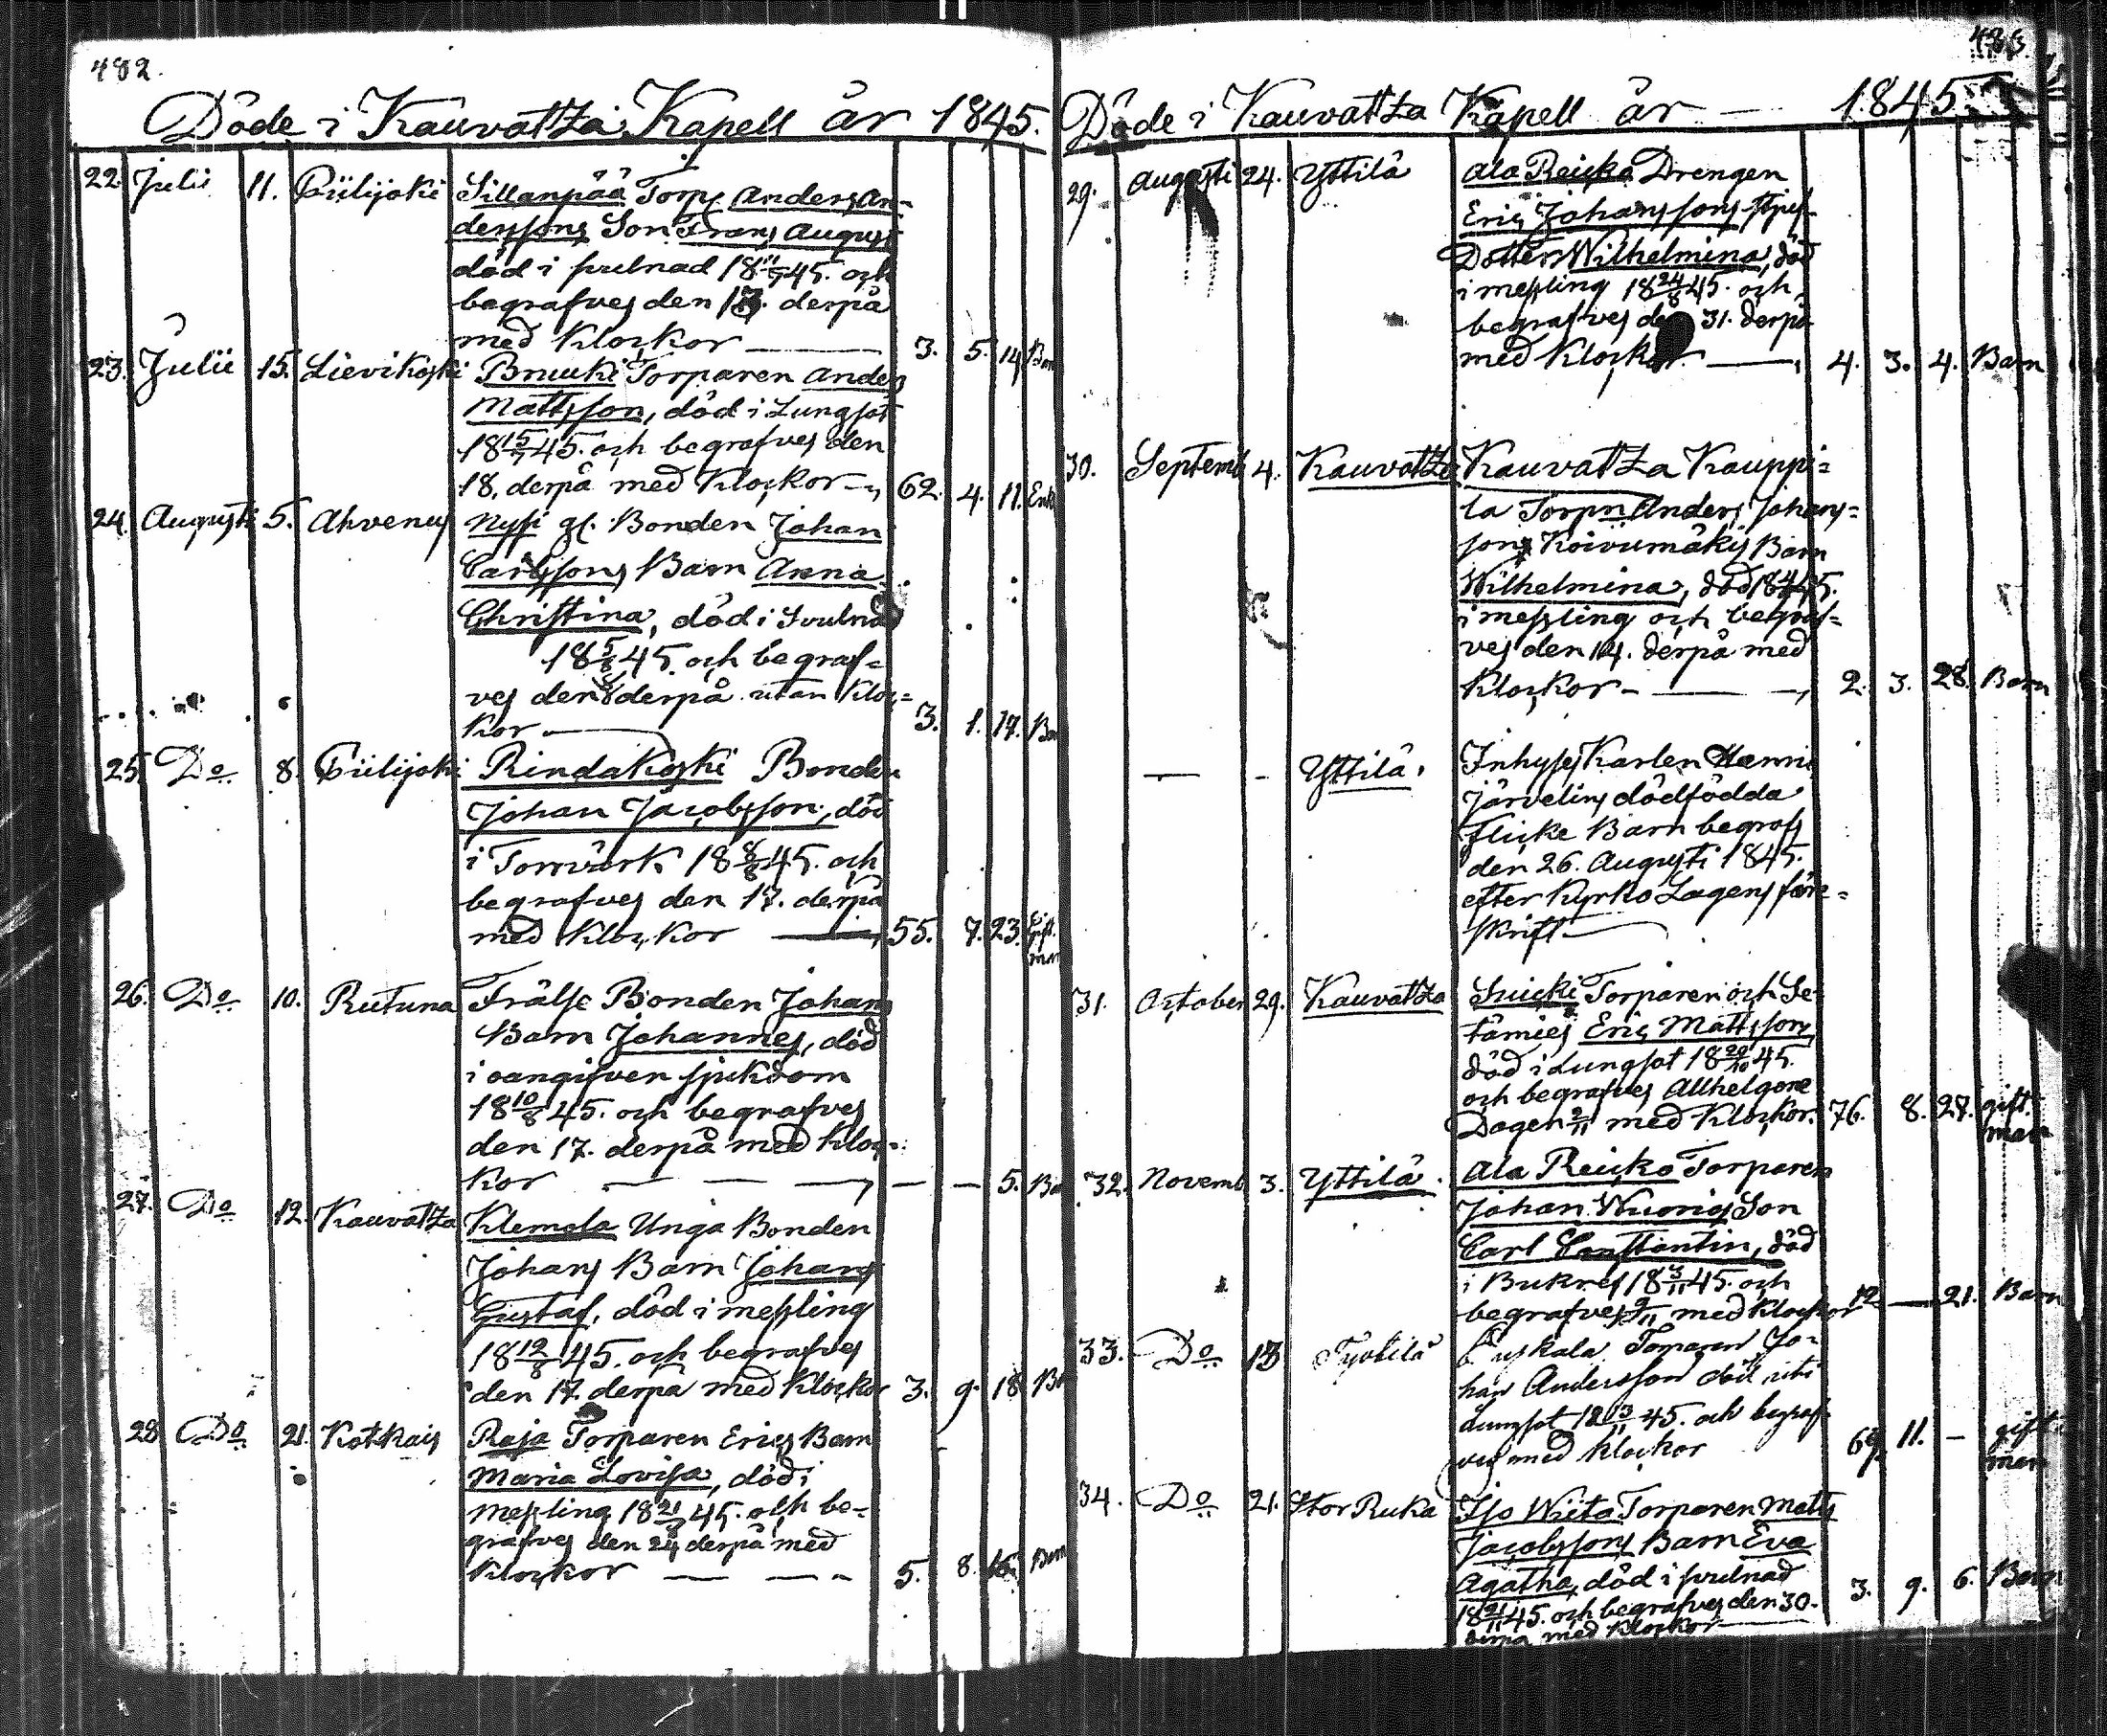 482.
Döde i Kauvatza Kapell år 1845.
22. Julii 11. Piilijoki Sillanpää Torp. Anders An-
derssons Son Frans August
död i svulnad 18 11/7 45. och
begrafves den 13. derpå
med Klockor 3. 5. 14 Barn
23. Julii 15. Lievikoski Pruuki Torparen Anders
Mattsson, död i Lungsot
18 15/7 45. och begrafves den
18. derpå med Klockor 62. 4. 11. Enk
24. Augusti 5. Ahvenus Nyssi gl. Bonden Johan
Carlssons Barn Anna
Christina, död i Svulnad
18 5/8 45 och begraf=
ves den derpå utan Kloc=
kor 3. 1. 17. Bar
25. Do 8. Piilijoki Rindakoski Bonden
Johan Jacobsson, död
i Torrvärk 18 8/8 45. och
begrafves den 17. derpå
med Klockor 55. 7. 23. gift.
man
26. Do 10. Rutuna Frälse Bonden Johans
Barn Johannes, död
i oangifven sjukdom
18 10/8 45. och begrafves
den 17. derpå med Kloc=
kor — — — — — 5. Ba
27. Do 12. Kauvatza Klemola Unga Bonden
Johans Barn Johans
Gustaf, död i messling
18 12/8 45. och begrafves
den 17. derpå med Klockor 3. 9. 18 Ba
28 Do 21. Kotkais Raja Torparen Erics Barn
Maria Lovisa, död i
messling 18 21/8 45. och be-
grafves den 24 derpå med
Klockor — — 5. 8. 16. Barn
483
Döde i Kauvatza Kapell år — 1845.
29. Augusti 24. Yttilä Ala Reicko Drengen
Eric Johanssons
Dotter Wilhelmina, död
i messling 18 24/8 45. och
begrafves den 31. derpå
med Klockor — 4. 3. 4. Barn
30. Septemb 4. Kauvatza Kauvatza Kauppi=
la Torpn Anders Johans=
sons Koivumäkis Barn
Wilhelmina, död 18 4/9 45.
i messling och begraf=
ves den 14. derpå med
Klockor — 2. 3. 28. Barn
— - Yttilä. Inhyses Karlen Henric
Järvelins dödfödda
Flicke Barn begrafs
den 26. Augusti 1845.
efter Kyrko Lagens före=
skrift
31. October 29. Kauvatza Torparen och Se-
tämies Eric Mattsson,
död i Lungsot 18 29/10 45.
och begrafves Allhelgone
Dagen 2/11 med Klockor. 76. 8. 27. gift.
man
32. Novemb 3. Yttilä. Ala Reicko Torparen
Johan Wuoris Son
Carl Constantin, död
i Bukref 18 3/11 45. och
begrafves 9/11 med Klockor 12 — 21. Barn
33. Do 13 Tyvtilä Torparen Jo-
han Andersson död uti
Lungsot 18 45. och begraf-
ves med Klockor 69. 11. - gift
man
34. Do 21. Stor Ruka Iso Wiita Torparen Matts
Jacobssons Barn Eva
Agatha, död i svulnad
18 21/11 45. och begrafves den 30.
derpå med Klockor 3. 9. 6. Barn